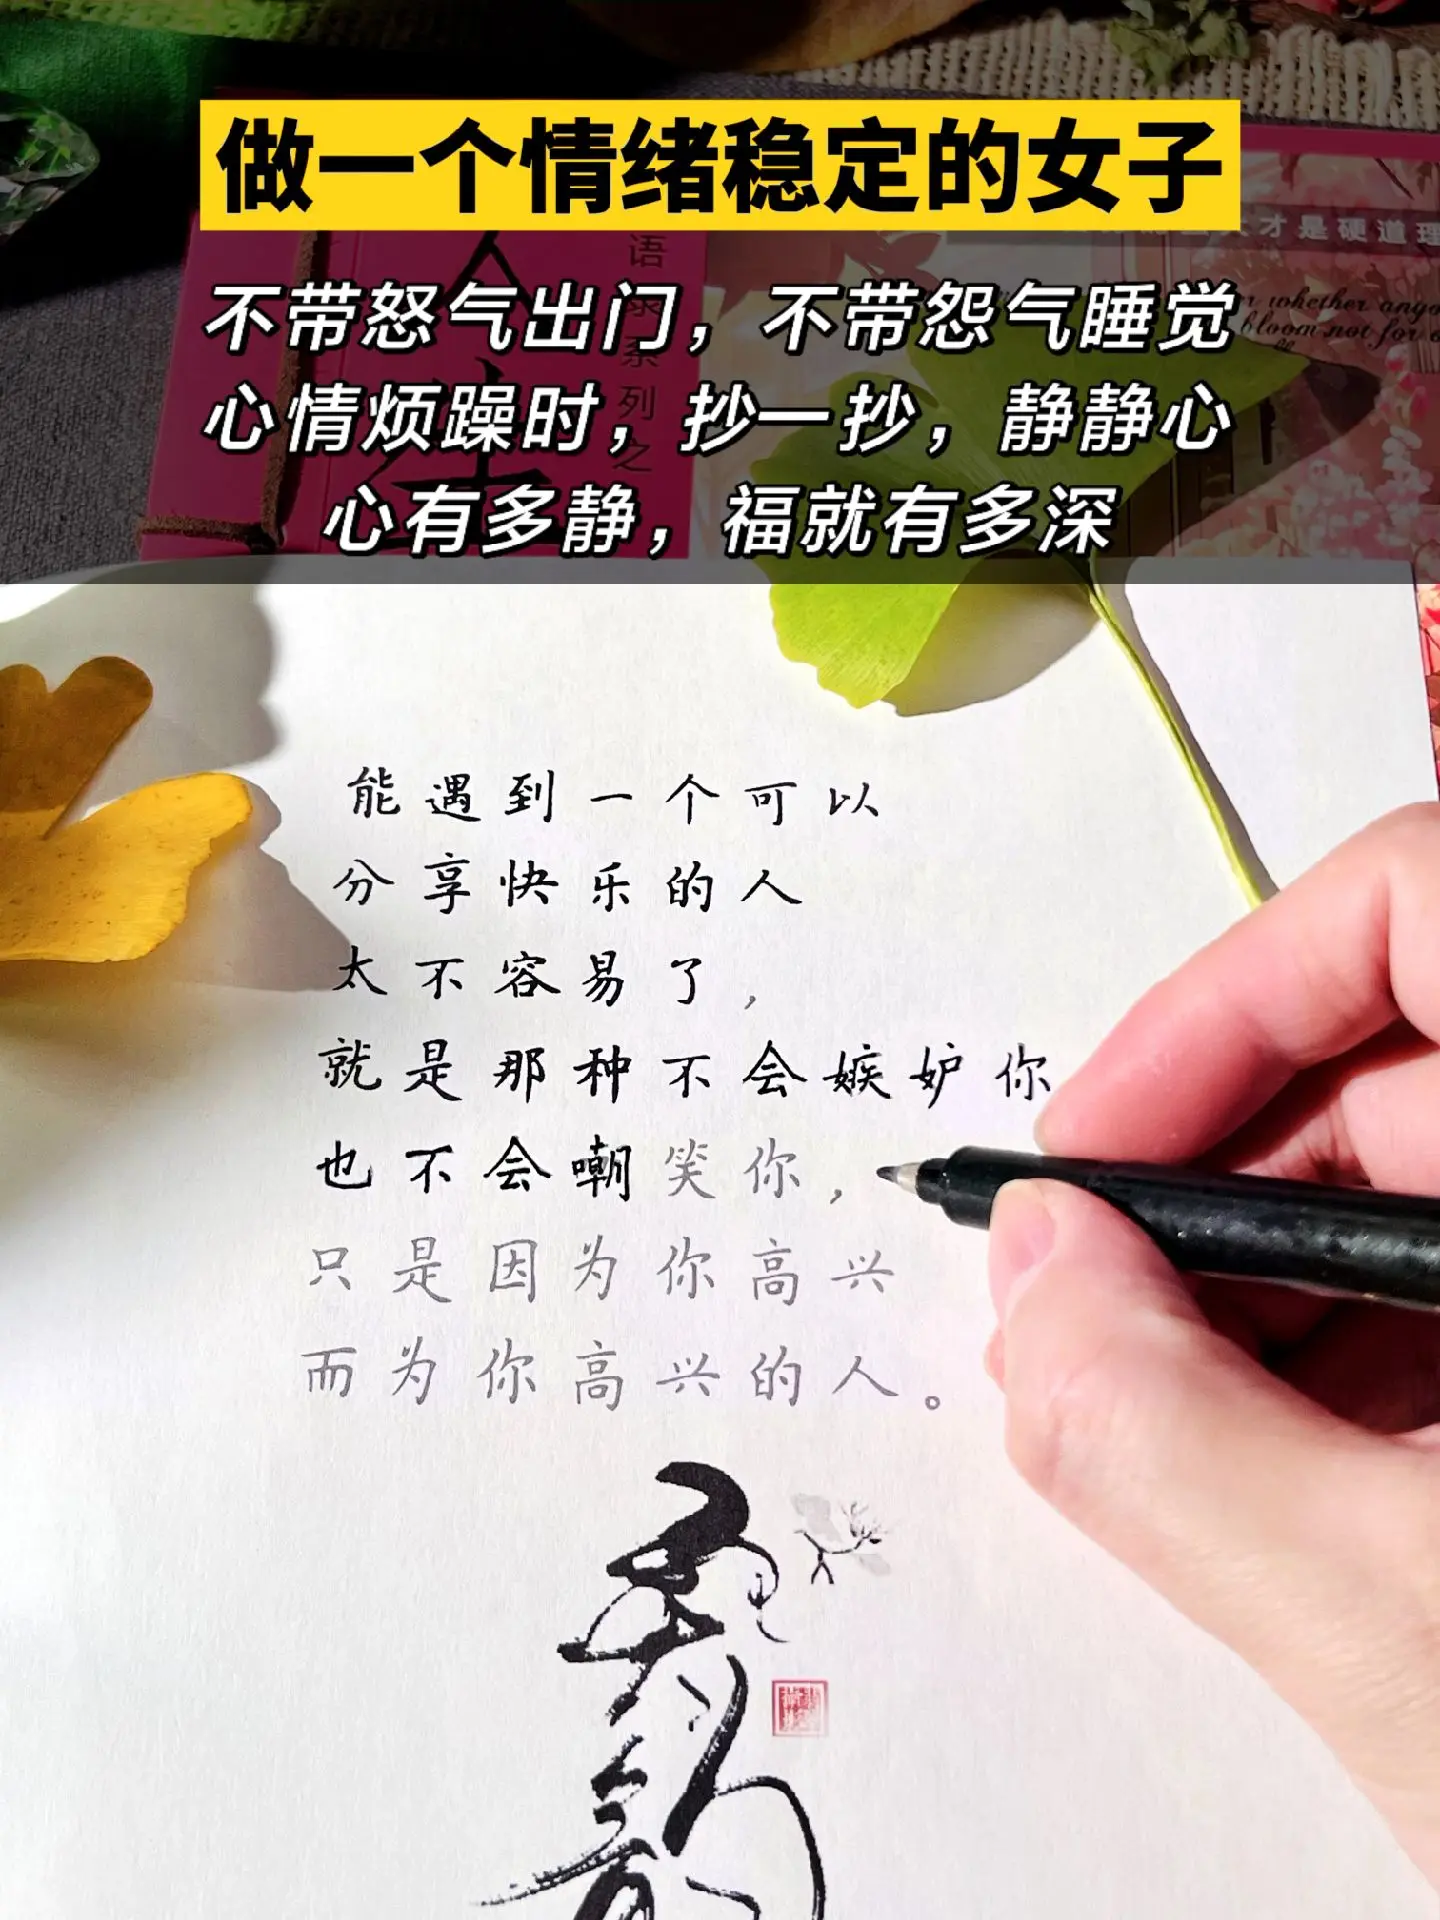 做一个情绪稳定的女子
语录系列之
人生
才是硬道理
whether anyo
bloom not for
不带怒气出门，不带怨气睡觉
心情烦躁时，抄一抄，静静心
心有多静，福就有多深
能遇到一个可以
分享快乐的人
太不容易了，
就是那种不会嫉妒你
也不会嘲笑你，
只是因为你高兴
而为你高兴的人。